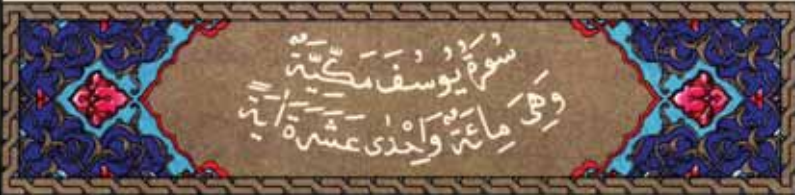 سُورَةُ يُوسُفَ مَكِّيَّةٌ
وَهِيَ مِائَةٌ وَإِحْدَى عَشَرَةَ اٰيَةً